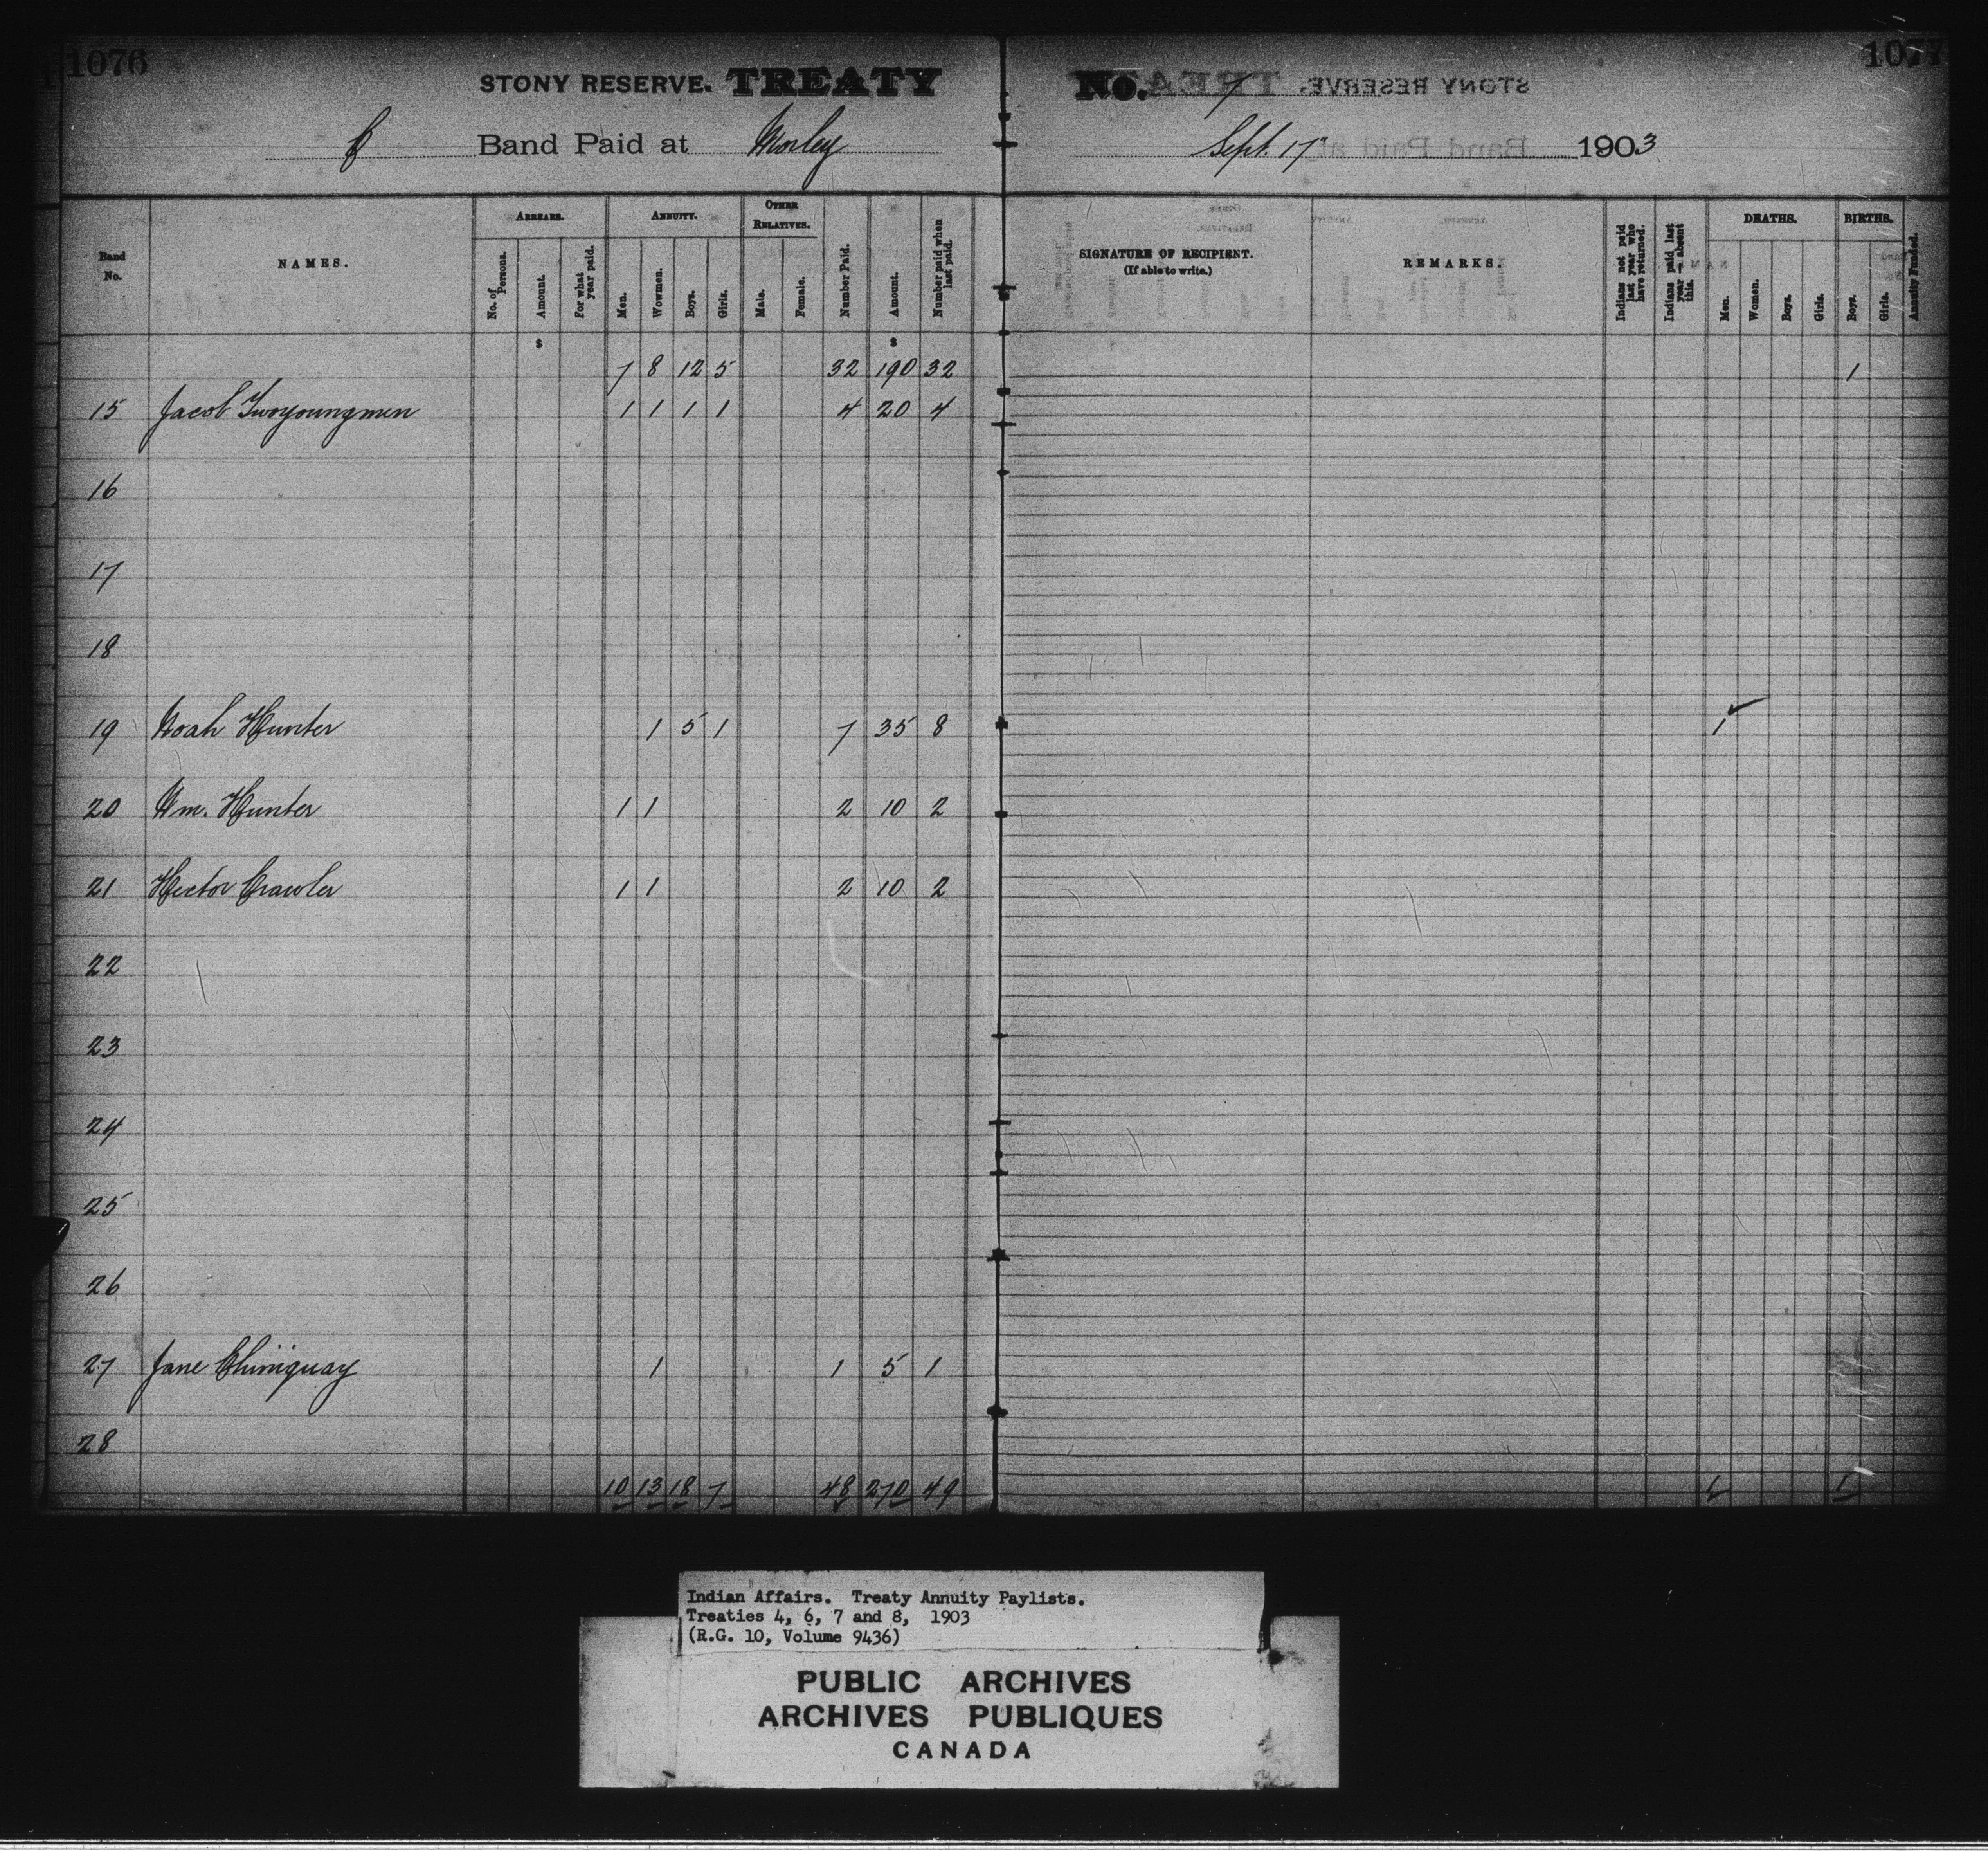 1076
STONY RESERVE. TREATY
C Band Paid at Morley
No. 7
Sept. 17" 1903
1077
Band No.
NAMES.
ARREARS.
No. of Persons.
Amount.
For what year paid.
ANNUITY.
Men.
Wowmen.
Boys.
Girls.
OTHER RELATIVES.
Male.
Female.
Number Paid.
Amount.
Number paid when last paid.
SIGNATURE OF RECIPIENT.
(If able to write.)
REMARKS.
Indians not paid last year who have returned.
Indians paid last year — absent this.
DEATHS.
Men.
Women.
Boys.
Girls.
BIRTHS.
Boys.
Girls.
Annuity Funded.
$ $
7 8 12 5 32 190 32 1
15 Jacob Twoyoungmen 1 1 1 1 4 20 4
16
17
18
19 Noah Hunter 1 5 1 7 35 8 1 ✓
20 Wm. Hunter 1 1 2 10 2
21 Hector Crawler 1 1 2 10 2
22
23
24
25
26
27 Jane Chiniquay 1 1 5 1
28
10 13 18 7 48 270 49 1 1
Indian Affairs. Treaty Annuity Paylists.
Treaties 4, 6, 7 and 8, 1903
(R.G. 10, Volume 9436)
PUBLIC ARCHIVES
ARCHIVES PUBLIQUES
CANADA